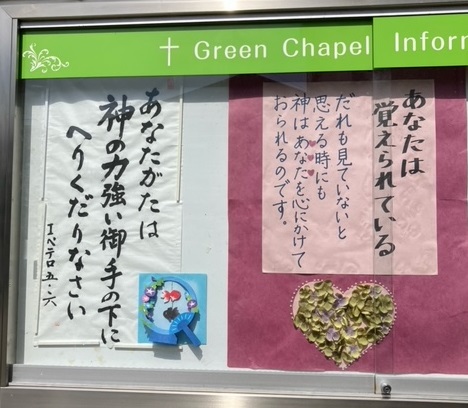 ✝ Green Chapel Inform
あなたは
覚えられている
だれも見ていないと
思える時にも
神はあなたを心にかけて
おられるのです。
あなたがたは
神の力強い御手の下に
へりくだりなさい
Iペテロ五・六